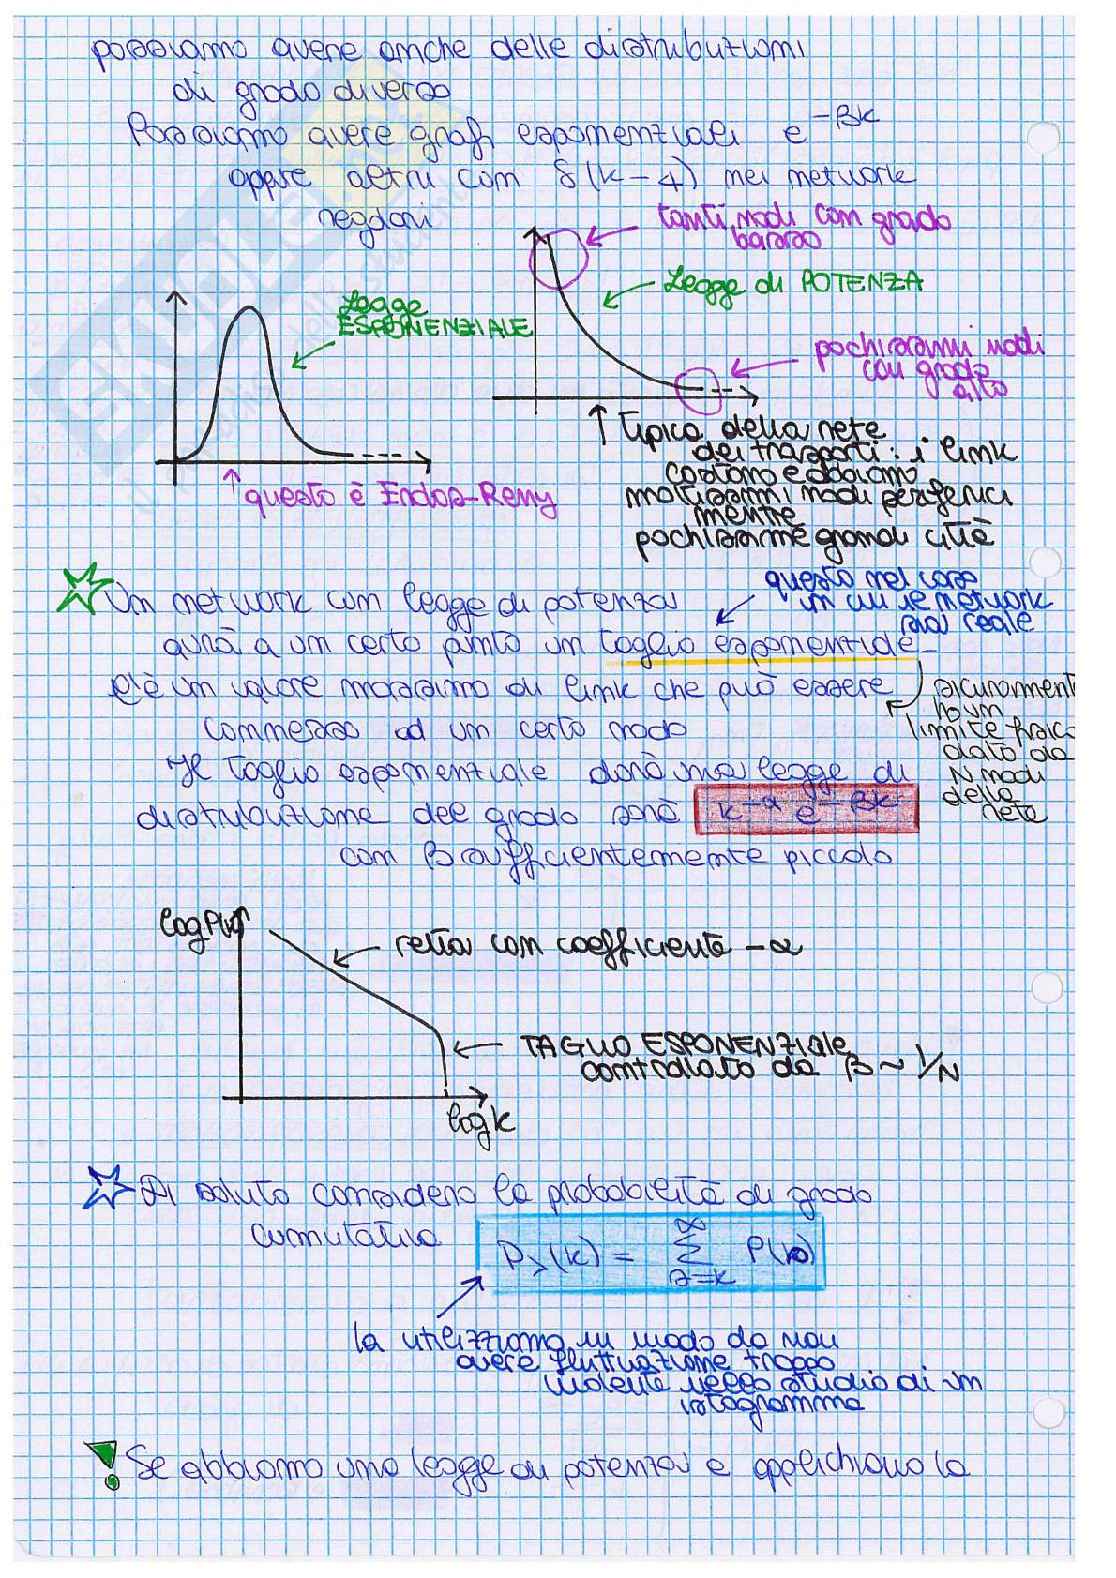 possiamo avere anche delle distribuzioni
di grado diverso
Possiamo avere grafi esponenziali e^-βk
oppure altri con δ(k-4) nei network
regolari
tanti nodi con grado
basso
Legge di POTENZA
Legge
ESPONENZIALE
pochissimi nodi
con grado
alto
questo è Erdos-Reny
Tipica della rete
dei trasporti: i link
costano e abbiamo
moltissimi nodi periferici
mentre
pochissime grandi città
Un network con legge di potenza
avrà a un certo punto un taglio esponenziale
questo nel caso
in cui il network
sia reale
c'è un valore massimo di link che può essere
connesso ad un certo nodo
sicuramente
ho un
limite fisico
dato da
N nodi
della
rete
Il taglio esponenziale darà una legge di
distribuzione del grado sarà k^-α e^-βk
con β sufficientemente piccolo
log P(k)
retta con coefficiente -α
TAGLIO ESPONENZIALE
controllato da β ~ 1/N
log k
Di solito considero la probabilità di grado
cumulativa P>(k) = ∞ Σ s=k P(s)
la utilizziamo in modo da non
avere fluttuazione troppo
violente nello studio di un
istogramma
Se abbiamo una legge di potenza e applichiamo la